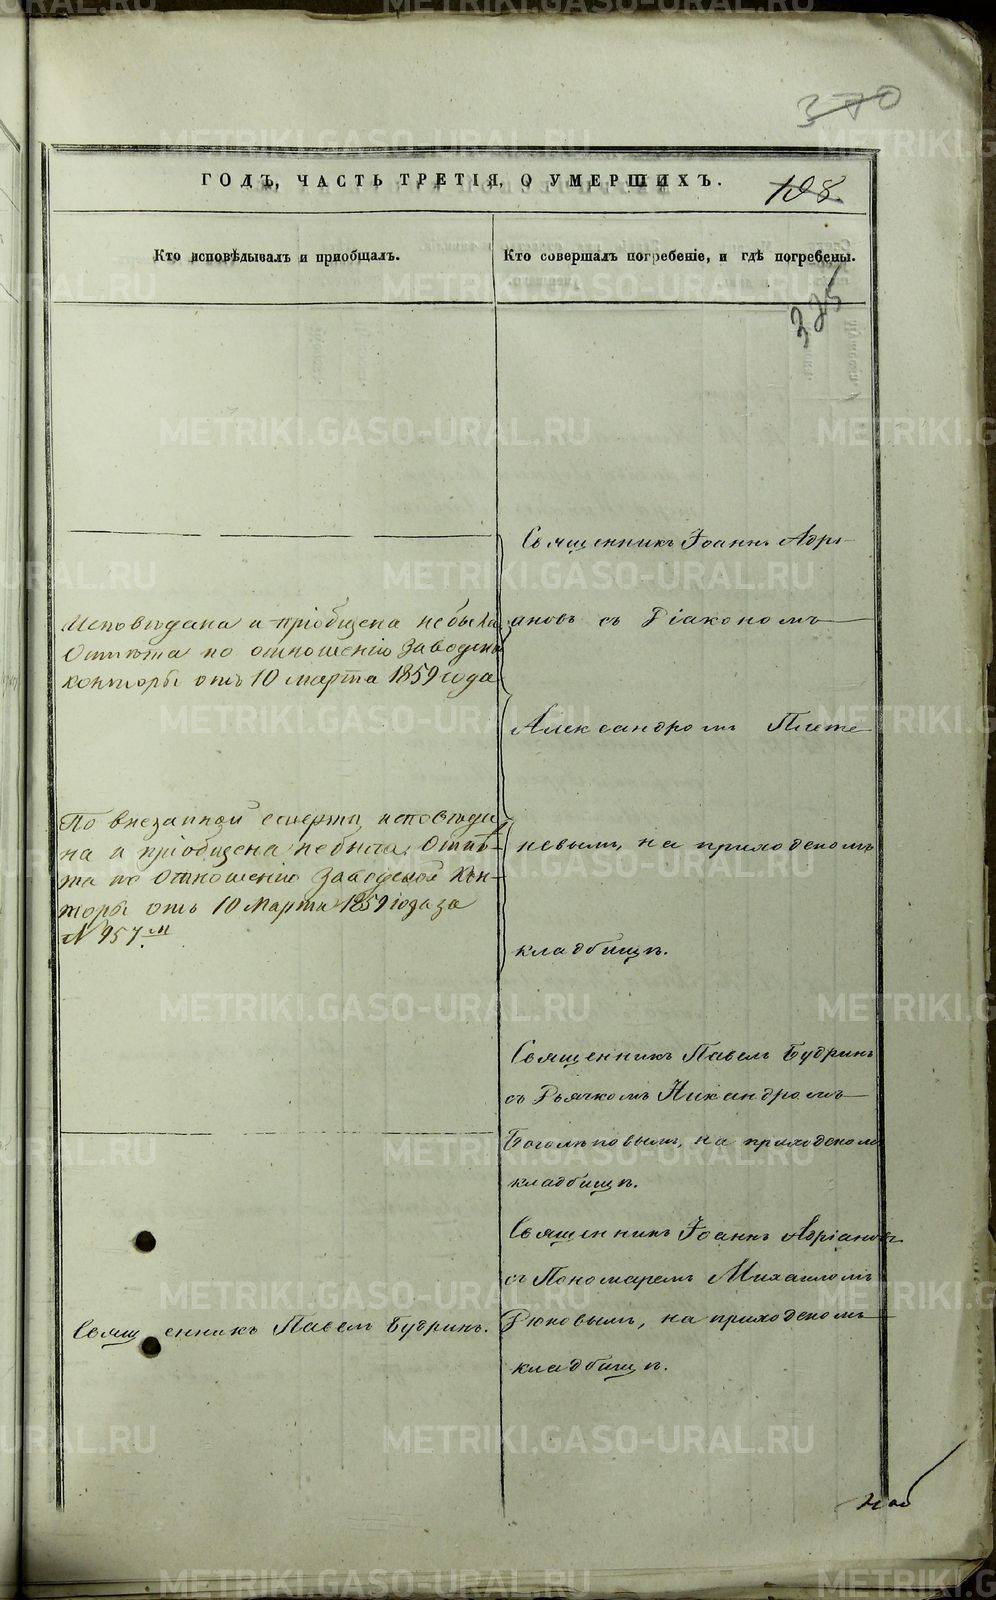 370
ГОДЪ, ЧАСТЬ ТРЕТІЯ, О УМЕРШИХЪ.
198.
Кто исповѣдывалъ и пріобщалъ.
Кто совершалъ погребеніе, и гдѣ погребены.
325
Исповѣдана и пріобщена небыла.
Отпѣта по отношенію Заводской
конторы отъ 10 марта 1859 года
По внезапной смерти исповѣда
на и пріобщена небыла. Отпѣ-
та по отношенію Заводской Кон-
торы отъ 10 Марта 1859 года за
N 957 м
Священникъ Павелъ Будринъ.
Священникъ Іоаннъ Адрі
ановъ съ Діакономъ
Александромъ Плете
невымъ, на приходскомъ
кладбищѣ.
Священникъ Павелъ Будринъ
съ Дьячкомъ Никандромъ
Боголѣповымъ, на приходскомъ
кладбищѣ.
Священникъ Іоаннъ Адріановъ
съ Пономаремъ Михаиломъ
на приходскомъ
кладбищѣ.
METRIKI.GASO-URAL.RU